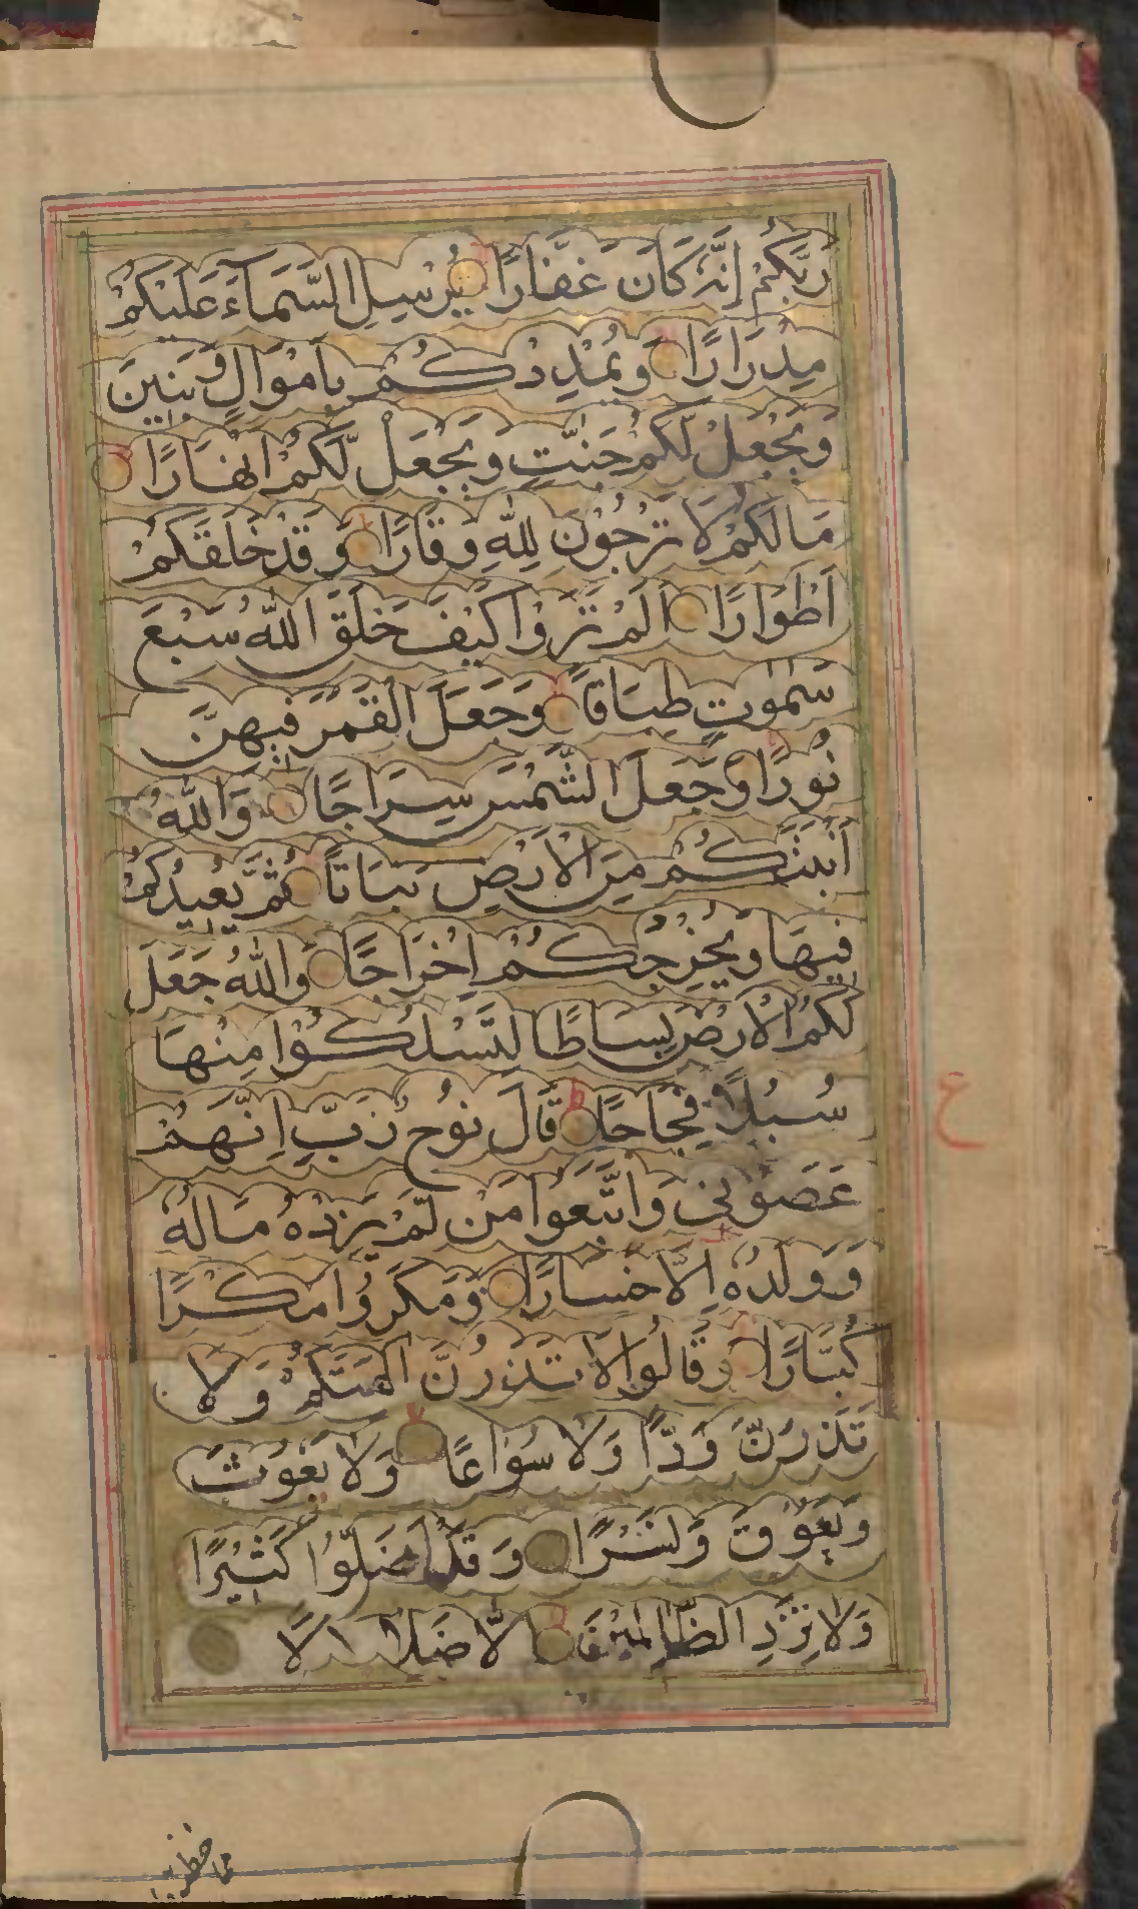 رَبَّكُمْ اِنَّهٗ كَانَ غَفَّارًا يُرْسِلِ السَّمَآءَ عَلَيْكُمْ
مِدْرَارًا وَيُمْدِدْكُمْ بِاَمْوَالٍ وَّبَنِينَ
وَيَجْعَلْ لَّكُمْ جَنّٰتٍ وَيَجْعَلْ لَّكُمْ اَنْهَارًا
مَالَكُمْ لَا تَرْجُوْنَ لِلّٰهِ وَقَارًا وَقَدْ خَلَقَكُمْ
اَطْوَارًا اَلَمْ تَرَوْا كَيْفَ خَلَقَ اللّٰهُ سَبْعَ
سَمٰوٰتٍ طِبَاقًا وَجَعَلَ الْقَمَرَ فِيهِنَّ
نُورًا وَّجَعَلَ الشَّمْسَ سِرَاجًا وَاللّٰهُ
اَنْبَتَكُمْ مِنَ الْاَرْضِ نَبَاتًا ثُمَّ يُعِيدُكُمْ
فِيهَا وَيُخْرِجُكُمْ اِخْرَاجًا وَاللّٰهُ جَعَلَ
لَكُمُ الْاَرْضَ بِسَاطًا لِتَسْلُكُوْا مِنْهَا
سُبُلًا فِجَاجًا قَالَ نُوْحٌ رَّبِّ اِنَّهُمْ
ع
عَصَوْنِي وَاتَّبَعُوْا مَنْ لَّمْ يَزِدْهُ مَالُهٗ
وَوَلَدُهٗ اِلَّا خَسَارًا وَمَكَرُوْا مَكْرًا
كُبَّارًا وَقَالُوا لَا تَذَرُنَّ اٰلِهَتَكُمْ وَلَا
تَذَرُنَّ وَدًّا وَّلَا سُوَاعًا وَلَا يَغُوثَ
وَيَعُوْقَ وَنَسْرًا وَقَدْ اَضَلُّوْا كَثِيْرًا
وَلَا تَزِدِ الظّٰلِمِيْنَ اِلَّا ضَلٰلًا